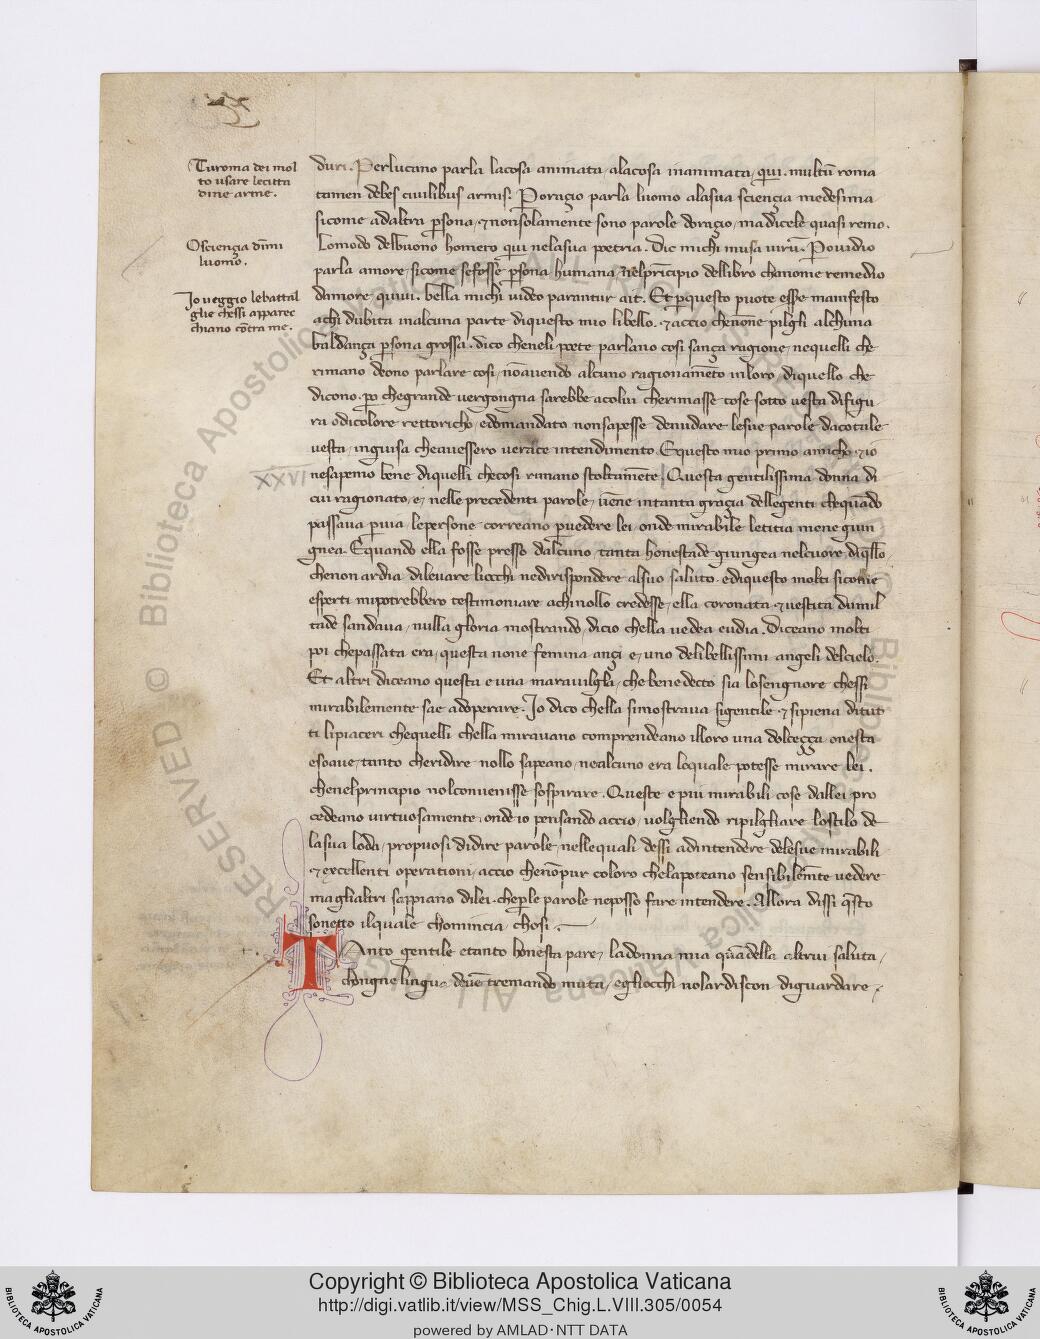 Tu roma dei mol
to usare le citta
dine arme.
O sciença dūni
luomo.
Io ueggio le battal
glie chessi apparec
chiano cōtra me.
duri. Per lucano parla la cosa animata, ala cosa inanimata, qui. multū roma
tamen debes ciuilibus armis. Per oraçio parla luomo ala sua sciença medesima
sicome ad altra p̱sona, ⁊ non solamente sono parole doraçio, ma dicele quasi remo.
Lo modo del buono homero qui ne la sua poetria. Dic michi musa uirū. Per ouidio
parla amore, sicome se fosse p̱sona humana, nel prīcipio del libro cha nome remedio
damore, quiui. bella michi uideo parantur ait. Et p̱ questo puote esse manifesto
a chi dubita in alcuna parte di questo mio libello. ⁊ accio che nōne pilgli alchuna
baldança p̱sona grossa. dico che ne li poete parlano cosi sança ragione, ne quelli che
rimano deono parlare cosi, nō auendo alcuno ragionamēto in loro, di quello che
dicono. po che grande uergongna sarebbe a colui che rimasse cose sotto uesta di figu
ra o di colore rettoricho, e domandato non sapesse denudare le sue parole da cotale
uesta, inguisa che auessero uerace intendimento. E questo mio primo amicho ⁊ io
ne sapemo bene di quelli che cosi rimano stoltamēte. Questa gentilissima donna di
XXVI
cui ragionato, e, nelle precedenti parole, uēne in tanta graçia delle genti che quādo
passaua p̱ uia le persone correano p̱ uedere lei, onde mirabile letitia mene giun
gnea. E quando ella fosse presso dalcuno, tanta honestade giungea nel cuore di qllo,
che non ardia di leuare li occhi ne di rispondere al suo saluto. e di questo molti sicome
esperti mi potrebbero testimoniare a chi nollo credesse, ella coronata ⁊ uestita dumil
tade sandaua, nulla gloria mostrando, di cio chella uedea e udia. Diceano molti
poi che passata era, questa none femina ançi e, uno de li bellissimi angeli del cielo.
Et altri diceano questa e una marauilglia, che benedecto sia lo sengnore chessi
mirabilemente sae adoperare. Io dico chella si mostraua si gentile ⁊ si piena di tut
ti li piaceri che quelli chella mirauano comprendeano illoro una dolceçça onesta
e soaue, tanto che ridire nollo sapeano, ne alcuno era lo quale potesse mirare lei,
che nel principio nol conuenisse sospirare. Queste e piu mirabili cose da llei pro
cedeano uirtuosamente, onde io pensando accio, uolgliendo ripilgliare lo stilo de
la sua loda, propuosi di dire parole nelle quali dessi ad intendere de le sue mirabili
⁊ excellenti operationi, accio che nō pur coloro che la poteano sensibilemte uedere
ma gli altri sappiano di lei. che p̱ le parole ne posso fare intendere. Allora dissi qsto
sonetto il quale chomincia chosi.
TAnto gentile e tanto honesta pare, la donna mia quādella altrui saluta,
chongne lingua deuē tremando muta, e gliocchi no lardiscon di guardare,
Copyright © Biblioteca Apostolica Vaticana
http://digi.vatlib.it/view/MSS_Chig.L.VIII.305/0054
powered by AMLAD·NTT DATA